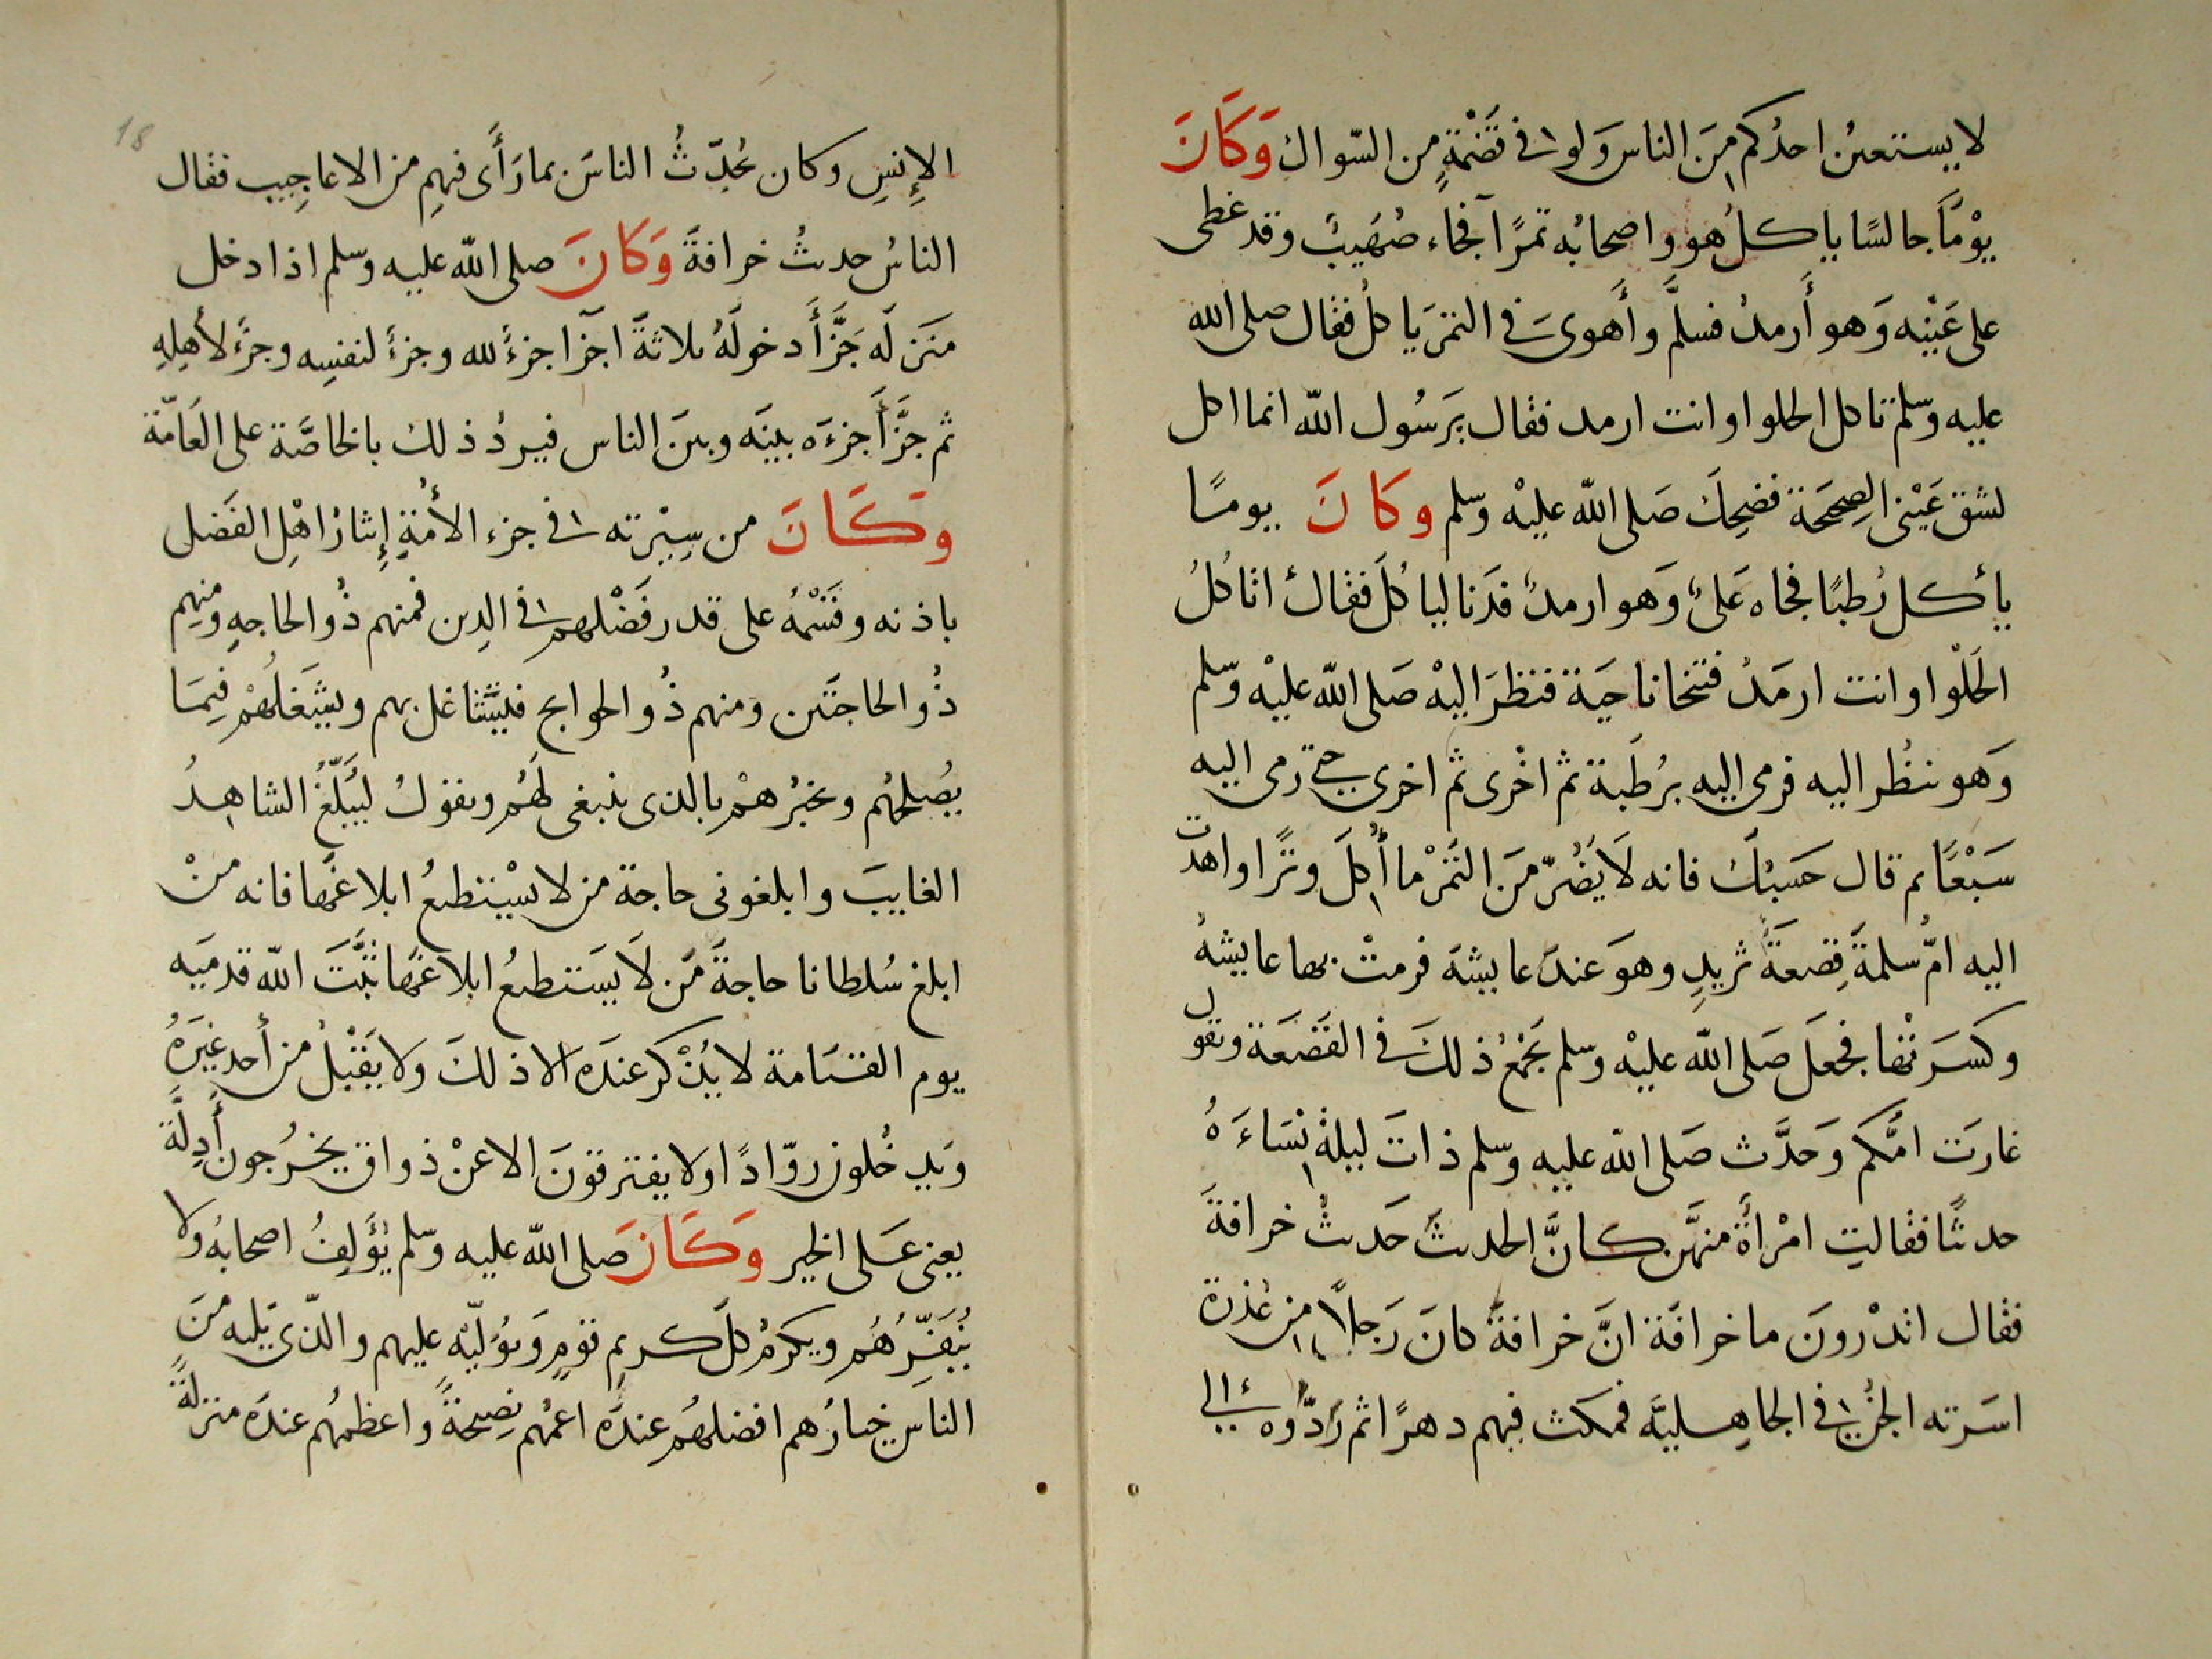 لا يستعين احدُكم مِنَ الناس وَلو في قَضْمَةٍ من السّواك وَكَانَ
يوْمًا جالسًا ياكلُ هو واصحابُه تمرًا فجاء صُهَيبٌ وقد غطى
على عَيْنِه وَهو أَرمدُ فسلَّم وأَهوىَ في التمرَ ياكلُ فقال صلى الله
عليه وسلم تاكل الحلوا وانت ارمد فقال يَرَسُول الله انما اكل
لشق عَيْنى الصِحيحَة فضحِكَ صَلى الله عليْه وسلم وكَانَ يومًا
يأكل رُطبًا فجاه عَلىٌ وَهو ارمدُ فدَنا لياكُلَ فقال اتاكُلُ
الحَلْوا وانت ارمَدُ فتنحا ناحيَة فنظرَ اليهْ صَلى الله عليْه وسلم
وَهو ينظُر اليه فرمى اليه برُطَبة ثم اخْرى ثم اخرى حتى رمى اليه
سَبْعًا ثم قال حَسَبُكَ فانه لَا يَضُرّ مَن التَمْر ما أُكِلَ وترًا واهدت
اليه امُّ سلمةَ قِصعَةَ ثريدٍ وهوَ عندَ عايشَة فرمتْ بها عايشةُ
وكسَرَتْها فجعلَ صَلى الله عليْه وسلم يَجْمَعُ ذلكَ في القَصَعَة ويقول
غارَت امُّكم وَحَدَّث صَلى الله عليه وسلم ذاتَ ليلةٍ نِسَاءَهُ
حديثًا فقالتِ امْرأةٌ منهَّن كانَّ الحديثَ حَديثُ خرافةَ
فقال اتدْرونَ ما خرافَة انَّ خرافةَ كانَ رَجلاً مِن عُذرة
اسَرته الجنُّ في الجاهِليَّه فمكث فيهم دهرًا ثم رَدّوُه الى
18
الإِنسِ وكان يُحَدِّثُ الناسَ بما رَأَى فيهِم من الاعاجِيب فقال
الناسُ حديثُ خرافةَ وَكَانَ صلى الله عليه وسلم اذا دخل
منَزلَه جَزَّأَ دخولَهُ ثلاثةَ اجزآ جزءً لله وجزءً لنفسِه وجزءً لأهلِهِ
ثم جزَّأَ جزءَه بينَه وبينَ الناس فيردُ ذلك بالخاصَّة على العَامّة
وَكَانَ من سِيْرته في جزء الأُمّةِ إِيثارُ اهْلِ الفَضل
باذنه وقَسْمُهُ على قدر فَضْلهم في الدِين فمنهم ذُو الحاجهِ ومنهم
ذُو الحاجتَين ومنهم ذُو الحوايج فليتشاغل بهم ويشْغَلُهُمْ فِيمَا
يُصْلحُهُم ويخبُرهمْ بالذى ينبغى لَهُمُ ويقولُ ليُبَلّغُ الشاهِدُ
الغايبَ وابلغونى حاجة من لا يسْتطيعُ ابلاغَها فانه منْ
ابلغ سُلطانا حاجةَ مَن لَا يَستطيعُ ابلاغَها ثبَّتَ الله قدمَيه
يوم القيَامة لا يُذْكر عندَه الا ذلكَ ولا يَقْبلُ من أحد غيرَهُ
وَيدخُلون روّادًا ولا يفترقونَ الا عنْ ذواق يخرُجون أَدِلَّةً
يعنى عَلى الخير وَكَانَ صلى الله عليه وسلم يُؤَلِفُ اصحابُه ولا
يُنَفّرُهُم ويكرمُ كلَّ كريمِ قومٍ وَيُولّيه عليهم والذّى يَليه منَ
الناس خيارُهم افضلهُم عندَه اعمُهم نصِيحةً واعظمُهم عندَه منزلةً